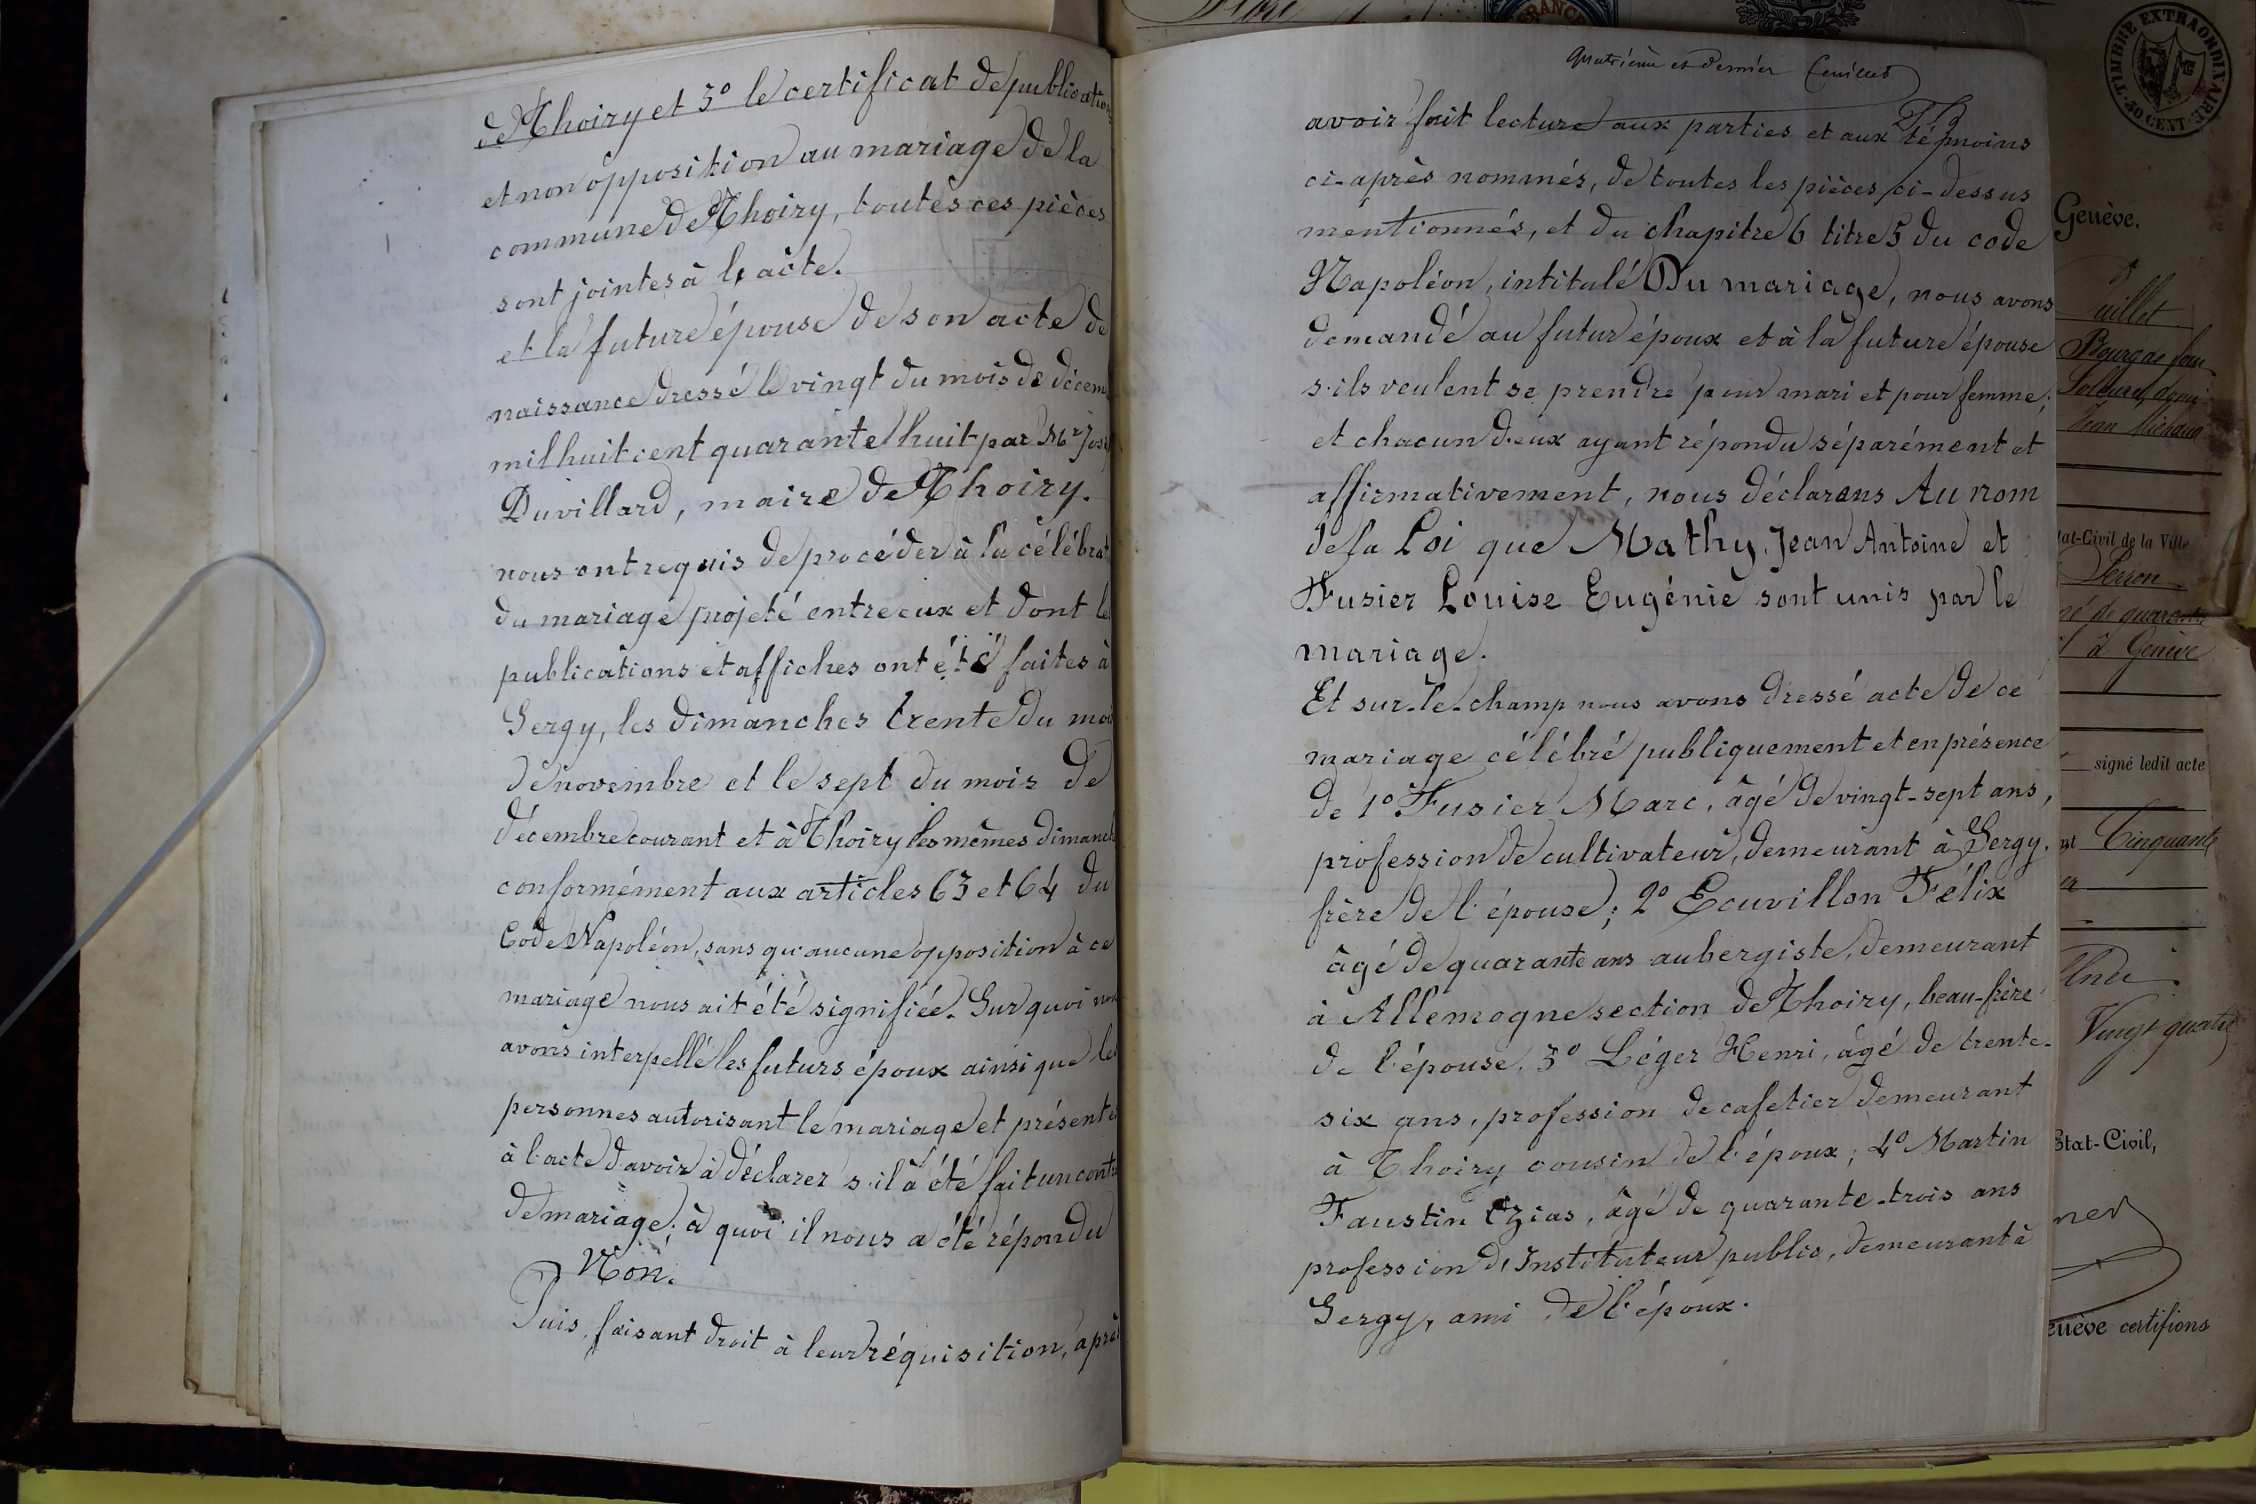 de Thoiry et 3° le certificat de publication
et non opposition au mariage de la
commune de Thoiry, toutes ces pièces
sont jointes à l, acte.
et la future épouse de son acte de
naissance dressé le vingt du mois de décem
mil huit cent quarante huit par Mr Jos
Duvillard, maire de Thoiry.
nous ont requis de procéder à la célébrat
du mariage projeté entre eux et dont le
publications et affiches ont été faites à
Sergy, les dimanches trente du moi
de novembre et le sept du mois de
décembre courant et à Thoiry les mêmes dimanch
conformément aux articles 63 et 64 du
Code Napoléon, sans qu'aucune opposition à ce
mariage nous ait été signifiée. Sur quoi nou
avons interpellé les futurs époux ainsi que le
personnes autorisant le mariage et présente
à l'acte d'avoir à déclarer s'il a été fait un contr
de mariage; à quoi il nous a été répondu
Non.
Puis, faisant droit à leur réquisition, aprè
Quatrième et Dernier
avoir fait lecture aux parties et aux témoins
ci-après nommés, de toutes les pièces ci-dessus
mentionnés, et du chapitre 6 titre 5 du code
Napoléon, intitulé Du mariage, nous avons
demandé au futur époux et à la future épouse
s'ils veulent se prendre pour mari et pour femme;
et chacun d'eux ayant répondu séparément et
affirmativement, nous déclarons Au nom
de la Loi que Mathy, Jean Antoine et
Fusier Louise Eugénie sont unis par le
mariage.
Et sur-le-champ nous avons dressé acte de ce
mariage célébré publiquement et en présence
de 1° Fusier Marc, âgé de vingt-sept ans,
profession de cultivateur, demeurant à Sergy,
frère de l'épouse; 2° Ecuvillon Félix
âgé de quarante ans aubergiste, demeurant
à Allemogne section de Thoiry, beau-frère
de l'épouse. 3° Léger Henri, âgé de trente-
six ans, profession de cafetier demeurant
à Thoiry cousin de l'époux; 4° Martin
Faustin Ozias, âgé de quarante-trois ans
profession d, Instituteur public, demeurant à
Sergy, ami de l'époux.
FRANCE
TIMBRE EXTRAORDINAIRE
50 CENT.
Genève.
uillet
Jean Michaud
tat-Civil de la Ville
Perron
né de quarante
à Genève
signé ledit acte
Cinquante
Vingt quatre
Etat-Civil,
ner
enève certifions